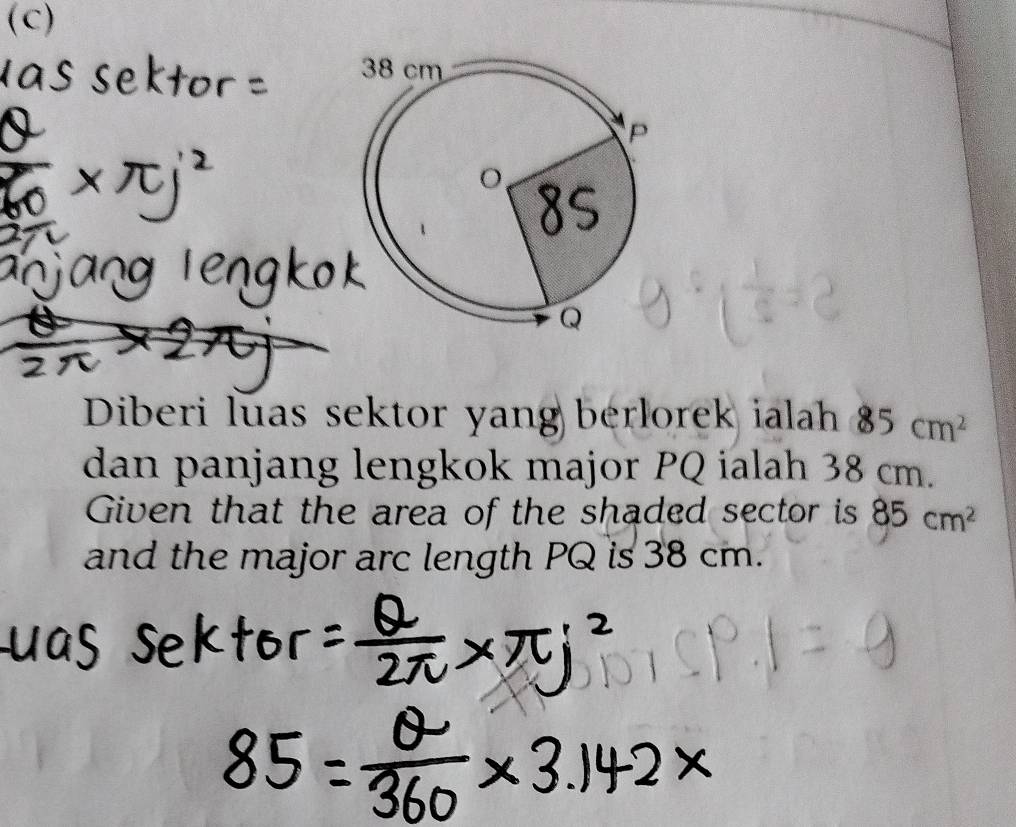 (C)
sektor =
θ
× πj²
2π
lengkok
θ/2π × 2πj
38 cm
P
O
85
Q
Diberi luas sektor yang berlorek ialah 85 cm²
dan panjang lengkok major PQ ialah 38 cm.
Given that the area of the shaded sector is 85 cm²
and the major arc length PQ is 38 cm.
sektor = θ/2π × πj²
85 = θ/360 × 3.142 ×